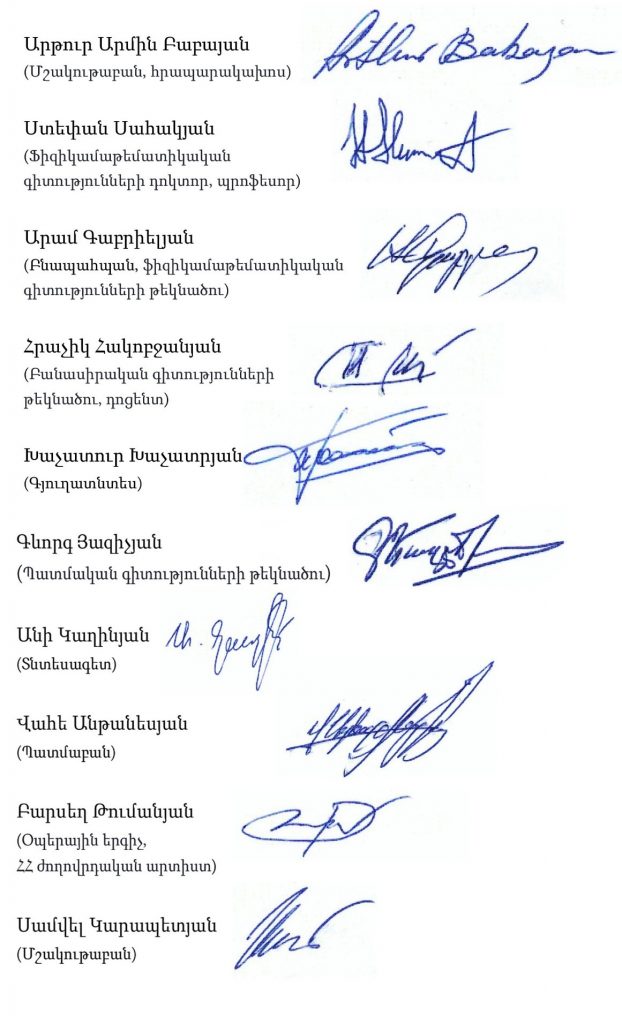 Արթուր Արմին Բաբայան
Arthur Babayan
(Մշակութաբան, հրապարակախոս)
Ստեփան Սահակյան
(Ֆիզիկամաթեմատիկական
գիտությունների դոկտոր, պրոֆեսոր)
Արամ Գաբրիելյան
(Բնապահպան, ֆիզիկամաթեմատիկական
գիտությունների թեկնածու)
Հրաչիկ Հակոբջանյան
(Բանասիրական գիտությունների
թեկնածու, դոցենտ)
Խաչատուր Խաչատրյան
(Գյուղատնտես)
Գևորգ Յազիչյան
(Պատմական գիտությունների թեկնածու)
Անի Կաղինյան
(Տնտեսագետ)
Վահե Անթանեսյան
(Պատմաբան)
Բարսեղ Թումանյան
(Օպերային երգիչ,
ՀՀ ժողովրդական արտիստ)
Սամվել Կարապետյան
(Մշակութաբան)